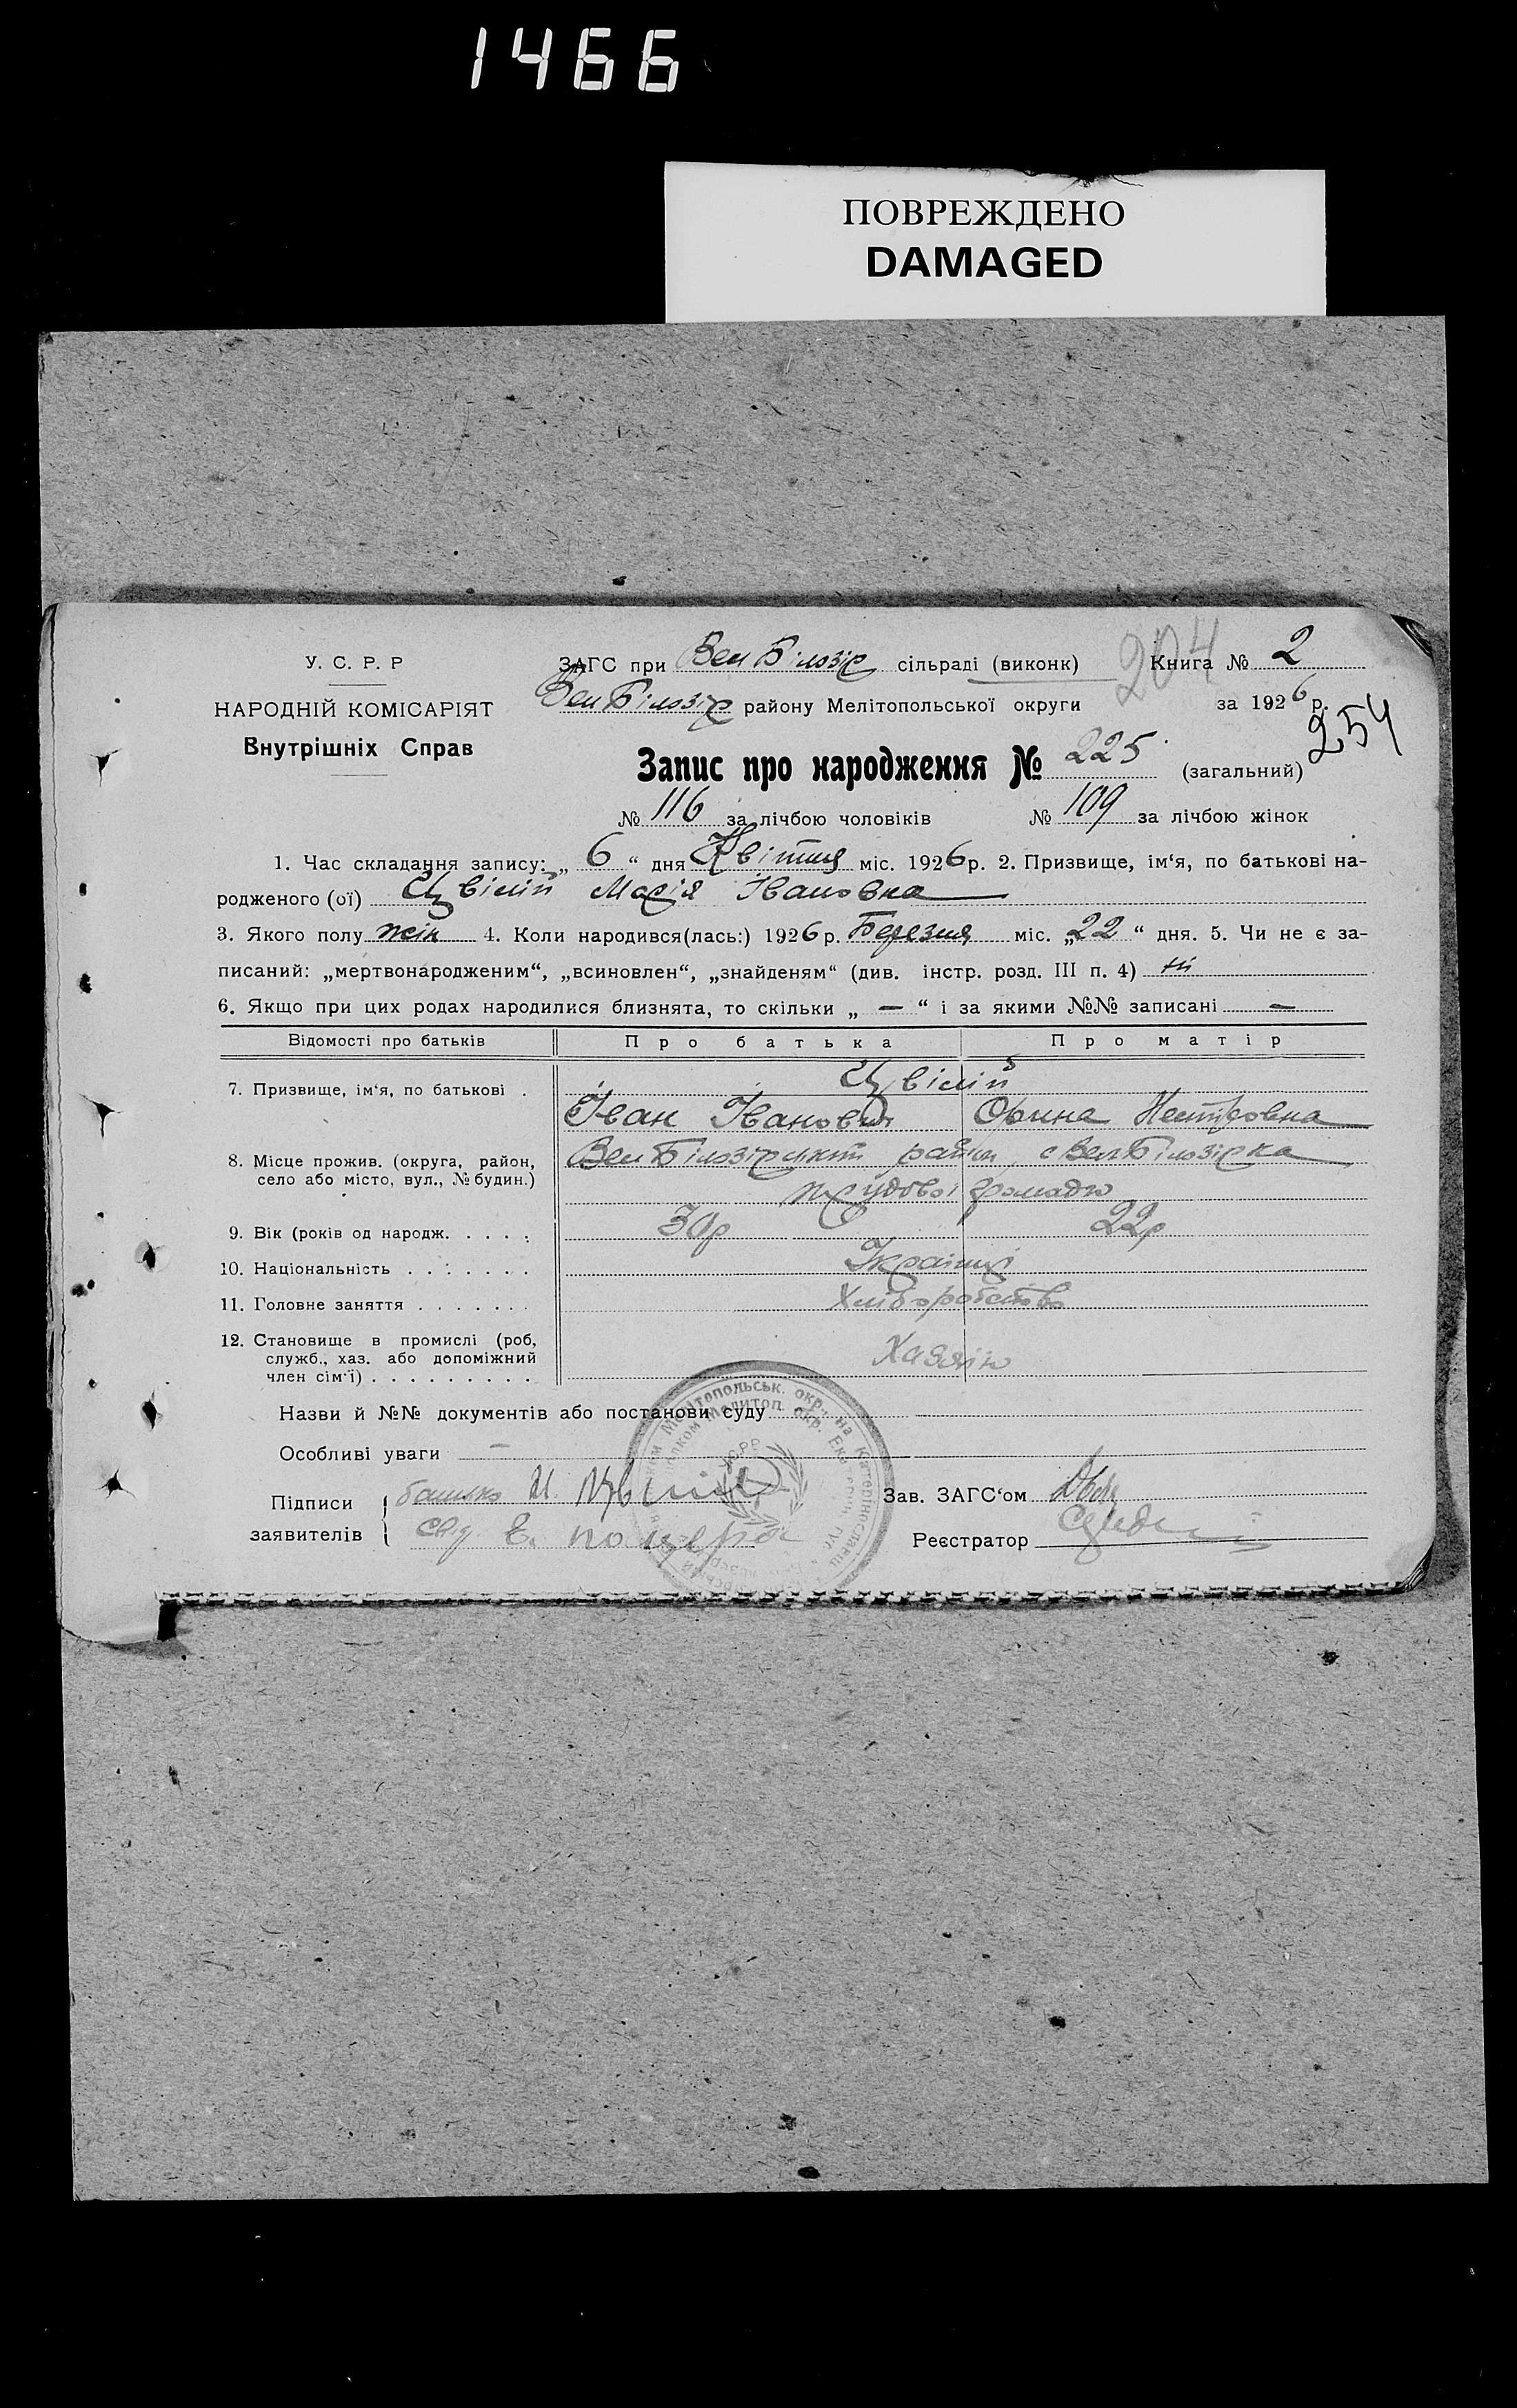 1466
ПОВРЕЖДЕНО
DAMAGED
У. С. Р. Р
НАРОДНІЙ КОМІСАРІЯТ
Внутрішніх Справ
ЗАГС при Вел Білозір сільраді (виконк) Книга № 2
204
Вел Білозір району Мелітопольської округи за 1926 р.
254
Запис про народження № 225 (загальний)
№ 116 за лічбою чоловіків № 109 за лічбою жінок
1. Час складання запису: „ 6 “ дня Квітня міс. 1926 р. 2. Призвище, ім‘я, по батькові на-
родженого (ої) Цвілій Марія Івановна
3. Якого полу жін 4. Коли народився(лась:) 1926 р. Березня міс. „22“ дня. 5. Чи не є за-
писаний: „мертвонародженим“, „всиновлен“, „знайденям“ (див. інстр. розд. III п. 4) ні
6. Якщо при цих родах народилися близнята, то скільки „ — “ і за якими №№ записані —
Відомості про батьків Про батька Про матір
7. Призвище, ім‘я, по батькові . Цвілій
Іван Іванович Орина Нестеровна
8. Місце прожив. (округа, район, Вел Білозірський район, с Вел Білозірка
село або місто, вул., № будин.) трудової громади
9. Вік (років од народж. . . . . 30р 22р
10. Національність . . . . . . . Українці
11. Головне заняття . . . . . . . Хліборобство
12. Становище в промислі (роб, служб., хаз. або допоміжний член сім‘ї) . . . . . . . . . Хазяїн
Назви й №№ документів або постанови суду —
Особливі уваги —
Підписи заявителів { батько И. Цвілій
Зав. ЗАГС‘ом
Свід. Е.
Реєстратор